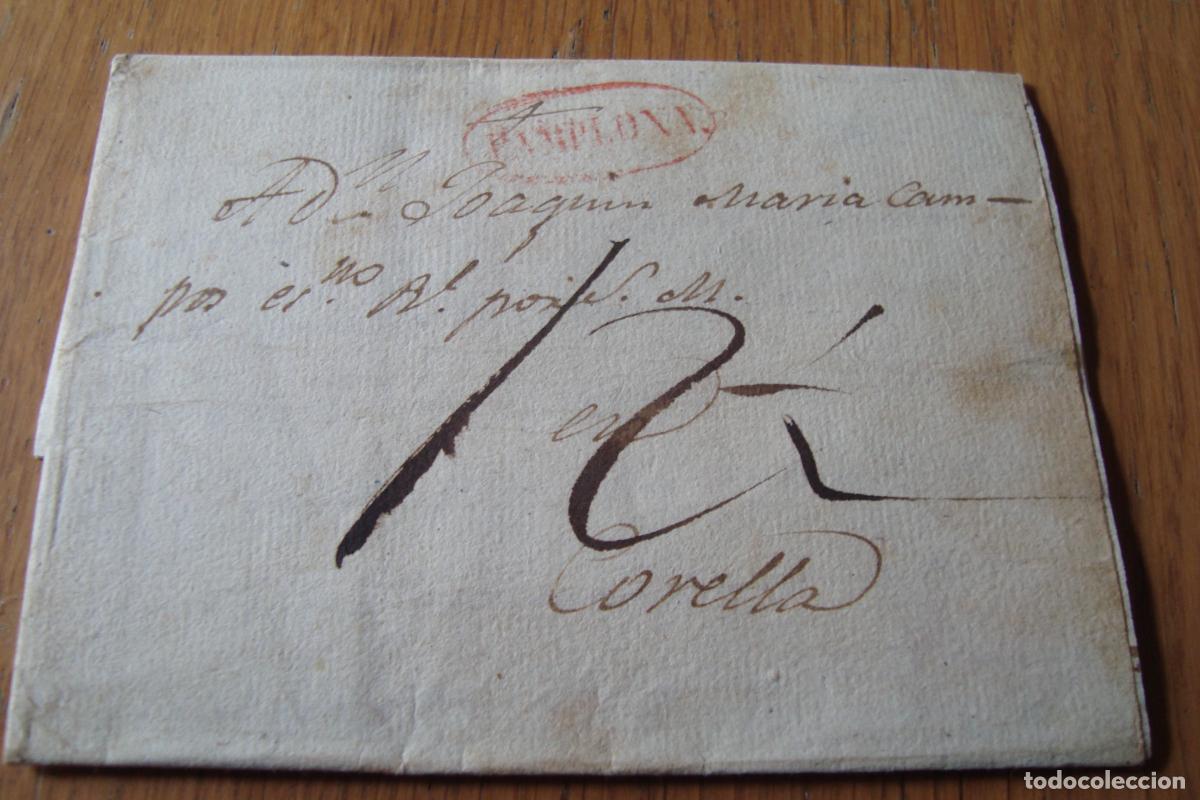 PAMPLONA.
A Dn. Joaquin Maria Cam-
pos es.no Rl. por S. M.
en
Corella
todocoleccion